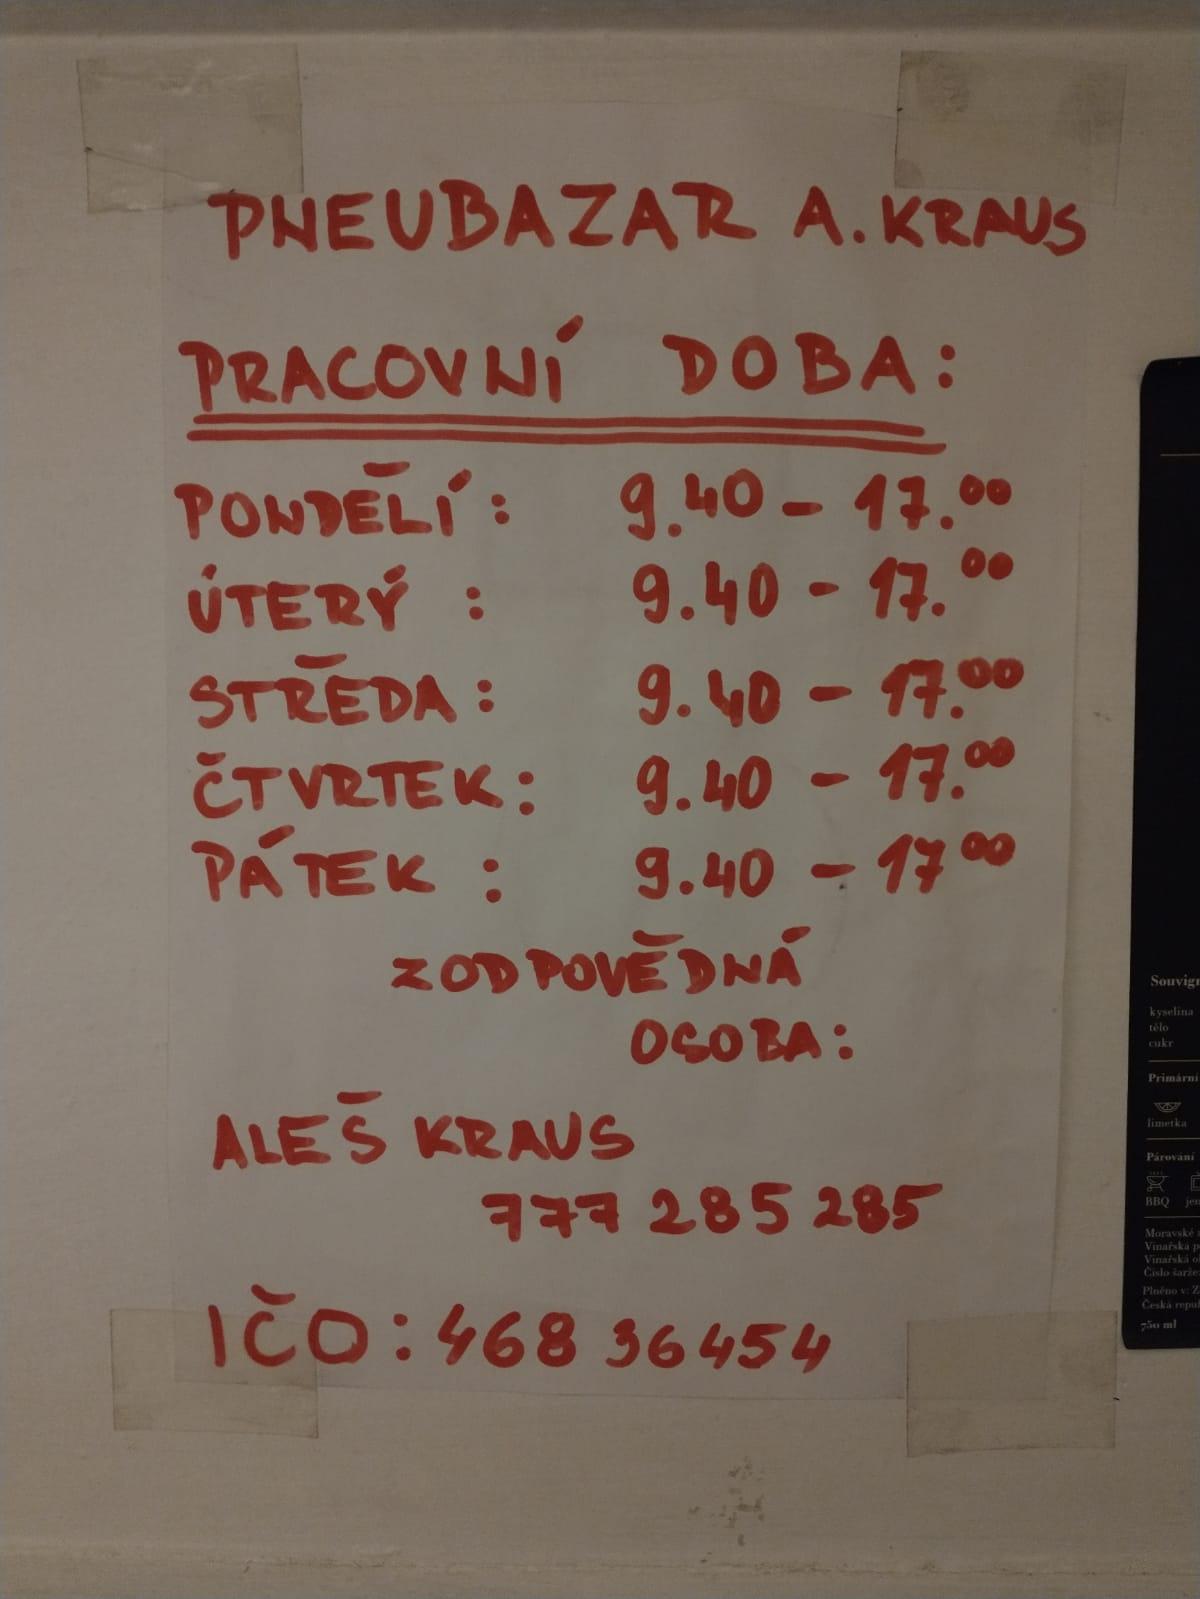 PNEUBAZAR A. KRAUS
PRACOVNÍ DOBA:
PONDĚLÍ: 9.40 – 17.00
ÚTERÝ : 9.40 – 17.00
STŘEDA: 9.40 – 17.00
ČTVRTEK: 9.40 – 17.00
PÁTEK : 9.40 – 17 00
ZODPOVĚDNÁ
OSOBA:
ALEŠ KRAUS
777 285 285
IČO: 468 36454
kyselina
tělo
cukr
Primární
limetka
Párování
BBQ
Moravské
Vinařská
Vinařská
Číslo šarže:
Plněno v:
Česká
750 ml